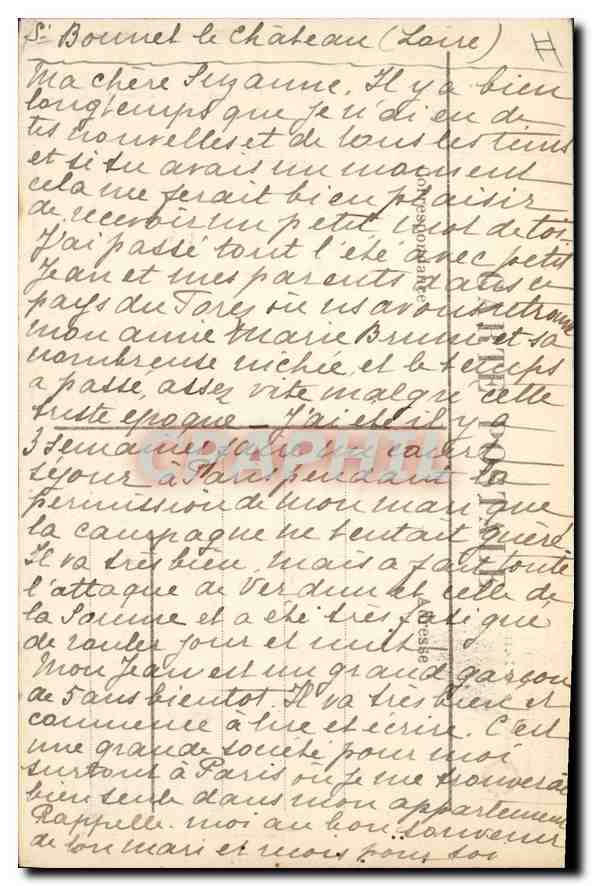 St Bonnet le Château (Loire)
Ma chère Suzanne. Il y a bien
longtemps que je n'ai eu de
tes nouvelles et de tous les tiens
et si tu avais un moment
cela me ferait bien plaisir
de recevoir un petit mot de toi.
J'ai passé tout l'été avec petit
Jean et mes parents dans ce
pays du Forez où ns avons retrouvé
mon amie Marie Brun et sa
nombreuse nichée, et le temps
a passé, assez vite malgré cette
triste époque _ J'ai été il y a
3 semaines faire un court
séjour à Paris pendant la
permission de mon mari que
la campagne ne tentait guère
Il va très bien, mais a fait toute
l'attaque de Verdun et celle de
la Somme et a été très fatigué
de rouler jour et nuit
Mon Jean est un grand garçon
de 5 ans bientot. Il va très bien et
commence à lire et écrire. C'est
une grande société pour moi
surtout à Paris où je me trouverai
bien seule dans mon appartement
Rappelle-moi au bon souvenir
de ton mari et pour toi
CARTE POSTALE
Correspondance
Adresse
CPAPHIL.COM